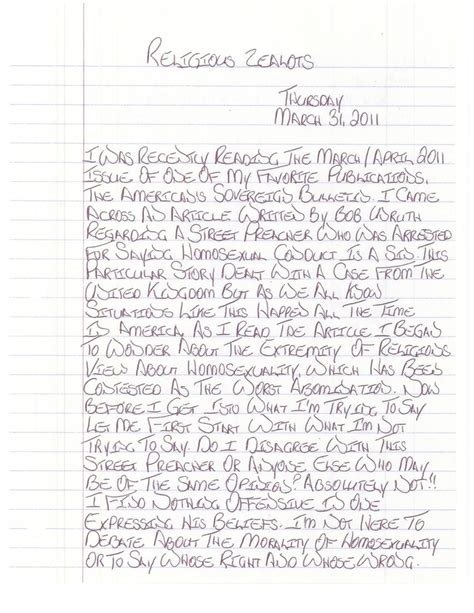 RELIGIOUS ZEALOTS
THURSDAY
MARCH 31, 2011
I WAS RECENTLY READING THE MARCH/APRIL 2011
ISSUE OF ONE OF MY FAVORITE PUBLICATIONS,
THE AMERICAN'S SOVEREIGN BULLETIN. I CAME
ACROSS AN ARTICLE WRITTEN BY BOB UNRUH
REGARDING A STREET PREACHER WHO WAS ARRESTED
FOR SAYING HOMOSEXUAL CONDUCT IS A SIN. THIS
PARTICULAR STORY DEALT WITH A CASE FROM THE
UNITED KINGDOM BUT AS WE ALL KNOW
SITUATIONS LIKE THIS HAPPEN ALL THE TIME
IN AMERICA. AS I READ THE ARTICLE I BEGAN
TO WONDER ABOUT THE EXTREMITY OF RELIGIOUS
VIEW ABOUT HOMOSEXUALITY, WHICH HAS BEEN
CONTESTED AS THE WORST ABOMINATION. NOW
BEFORE I GET INTO WHAT I'M TRYING TO SAY
LET ME FIRST START WITH WHAT I'M NOT
TRYING TO SAY. DO I DISAGREE WITH THIS
STREET PREACHER OR ANYONE ELSE WHO MAY
BE OF THE SAME OPINION? ABSOLUTELY NOT!!
I FIND NOTHING OFFENSIVE IN ONE
EXPRESSING HIS BELIEFS. I'M NOT HERE TO
DEBATE ABOUT THE MORALITY OF HOMOSEXUALITY
OR TO SAY WHOSE RIGHT AND WHOSE WRONG.